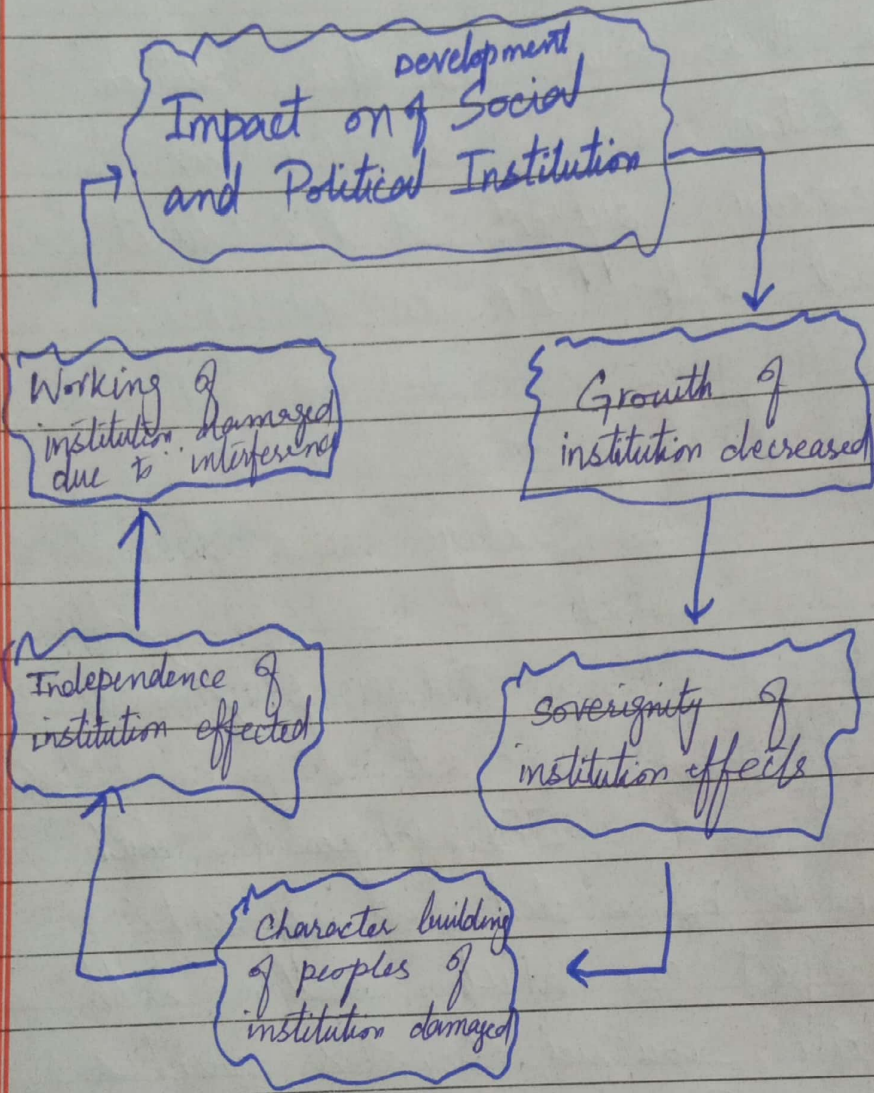 Development
Impact on of Social
and Political Institution
Growth of
institution decreased
Soverignity of
institution effects
Character building
of peoples of
institution damaged
Independence of
institution effected
Working of
institution damaged
due to interference